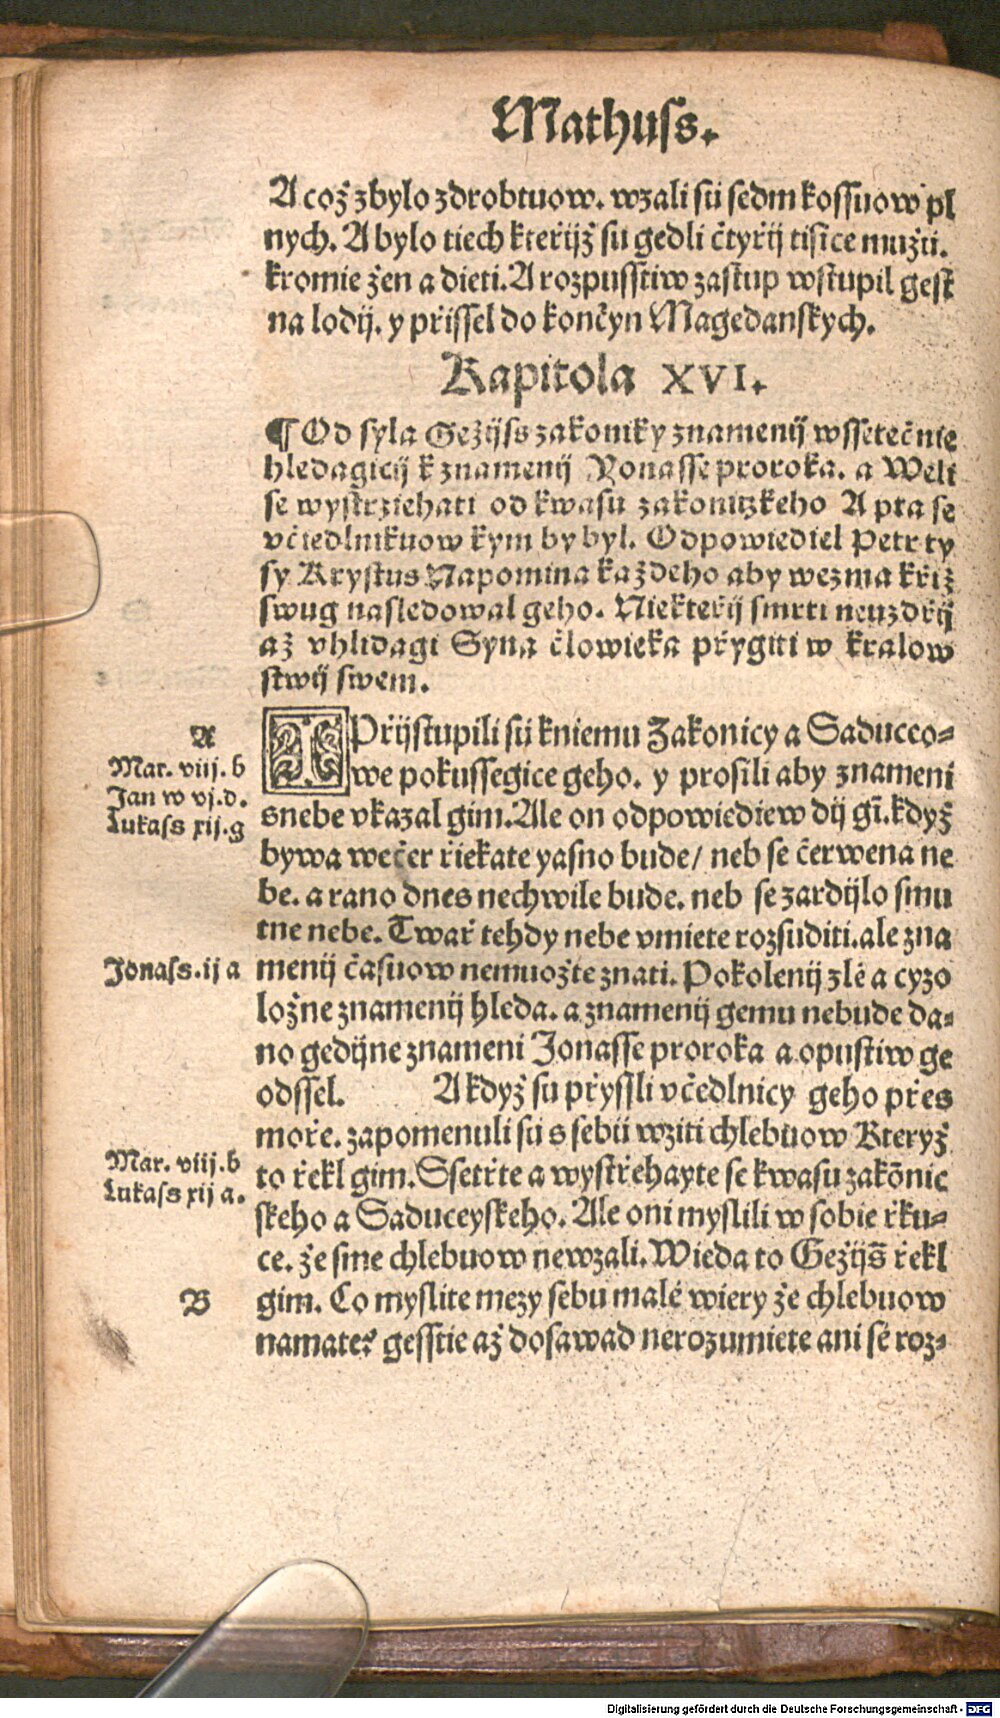 Mathuss.
A což zbylo zdrobtuow. wzali sú sedm kossuow pl
nych. A bylo tiech kteřijž su gedli čtyřij tisíce mužú.
kromie žen a dieti. A rozpusstiw zastup wstupil gest
na lodij. y přissel do končyn Magedanskych.
Kapitola XVI.
¶ Od syla Gežijss zakoniky znamenij wssetečnie
hledagicij k znamenij Yonasse proroka. a Weli
se wystrziehati od kwasu zakonitzkeho A pta se
včiedlnikuow kym by byl. Odpowiediel Petr ty
sy Krystus Napomina každeho aby wezma křiž
swug nasledowal geho. Niekteřij smrti neuzdřij
až vhlidagi Syna člowieka přygiti w kralow
stwij swem.
A
Mar. viij. b
Jan w vj. d.
Lukass xij. g
A Přijstupili sú kniemu Zakonicy a Saduceo-
we pokussegice geho. y prosili aby znameni
snebe vkazal gim. Ale on odpowiediew dij gī. když
bywa wečer řiekate yasno bude/ neb se čerwena ne
be. a rano dnes nechwile bude. neb se zardijlo smu
tne nebe. Twař tehdy nebe vmiete rozsuditi. ale zna
Jonass. ij a
menij časuow nemuožte znati. Pokolenij zlé a cyzo
ložne znamenij hleda. a znamenij gemu nebude da-
no gedijne znameni Jonasse proroka a opustiw ge
odssel. A když su přyssli včedlnicy geho přes
moře. zapomenuli sú s sebú wziti chlebuow Kteryž
Mar. viij. b
Lukass xij a.
to řekl gim. Ssetřte a wystřehayte se kwasu zakōnic
skeho a Saduceyskeho. Ale oni myslili w sobie řku-
ce. že sme chlebuow newzali. Wieda to Gežijs̄ řekl
B
gim. Co myslite mezy sebu malé wiery že chlebuow
namate? gesstie až dosawad nerozumiete ani se roz-
Digitalisierung gefördert durch die Deutsche Forschungsgemeinschaft - DFG